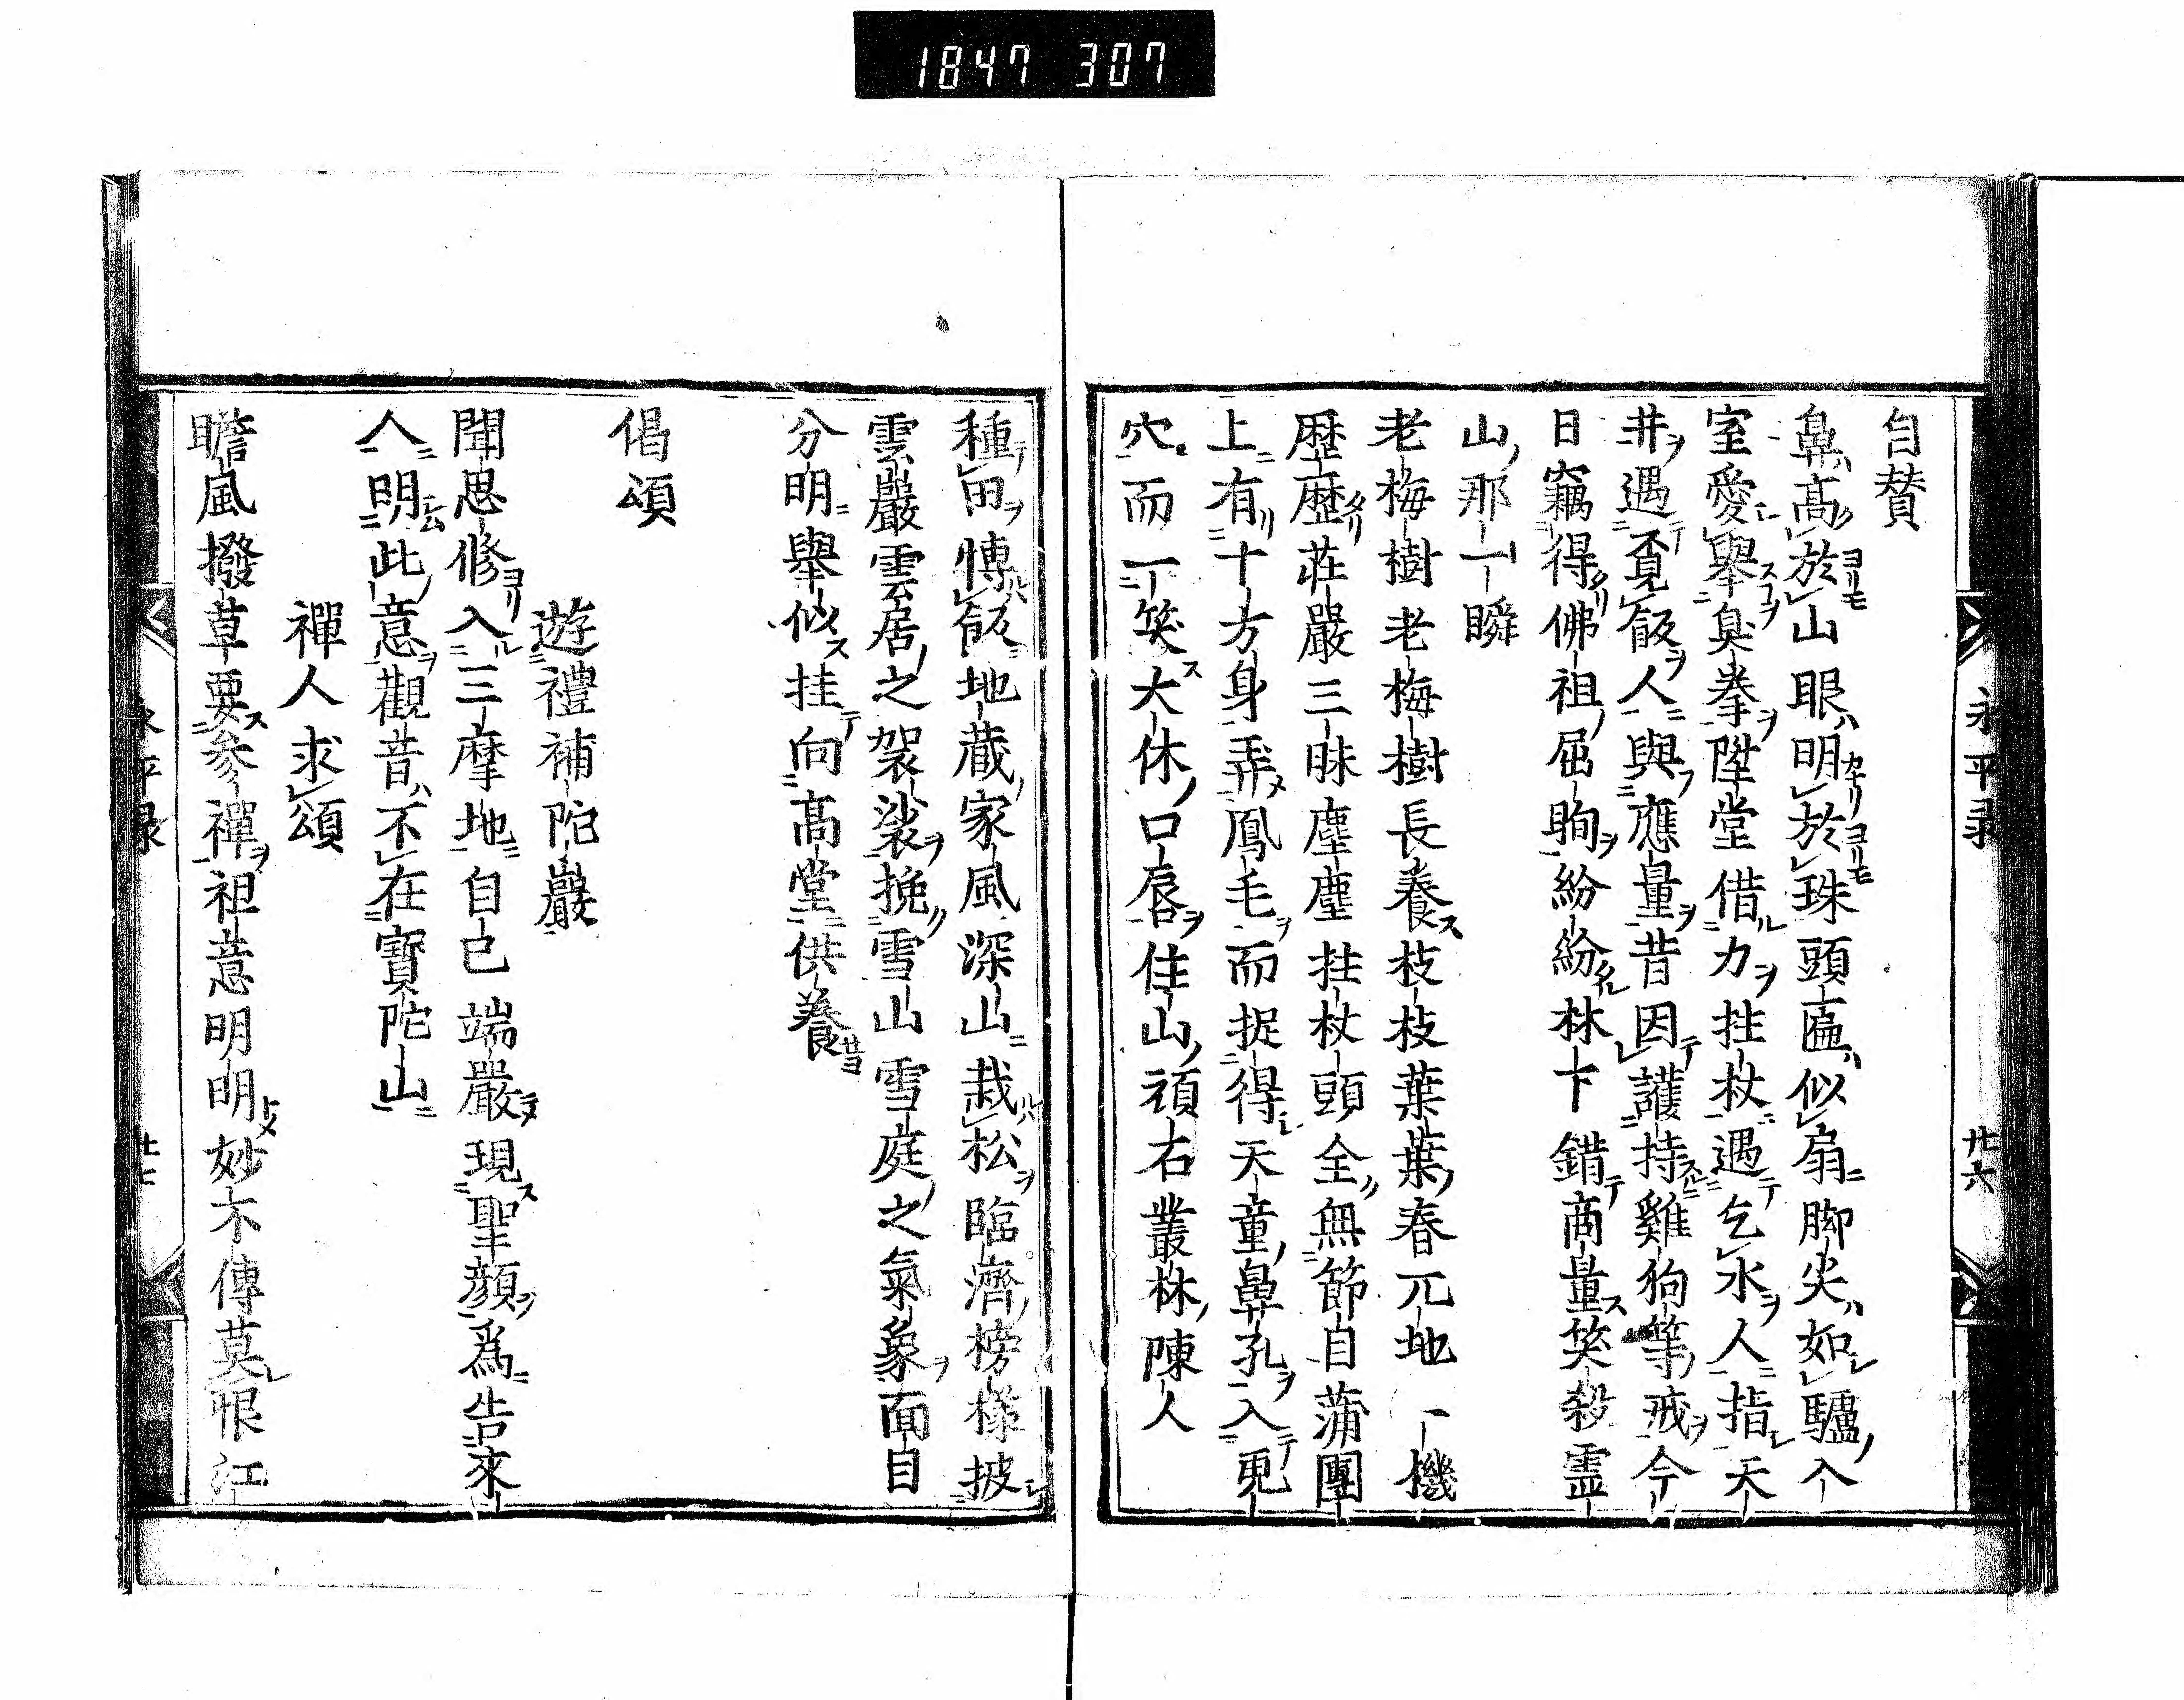 1847 307
自賛
鼻高於山眼明於珠頭匾似扇脚尖如驢入
室愛擧臭拳陞堂借力拄杖遇乞水人指天
井遇覔飯人與應量昔因護持雞狗等戒今
日竊得佛祖屈眴紛紛林下錯商量笑殺霊
山那一瞬
老梅樹老梅樹長養枝枝葉葉春兀地一機
歴歴莊嚴三昧塵塵拄杖頭全無節目蒲團
上有十方身弄鳳毛而捉得天童鼻孔入更
穴而一笑大休口唇住山頑石叢林陳人
永平录
廿六
種田慱飯地蔵家風深山栽松臨濟榜樣披
雲嚴雲居之袈裟挽雪山雪庭之氣象面目
分明擧似挂向髙堂供養
偈頌
遊禮補陀巖
聞思修入三摩地自己端嚴現聖顔爲告來
人明此意觀昔不在寶陀山
禪人求頌
瞻風撥草要參禪祖意明明妙不傳莫恨江
永平录
廿七